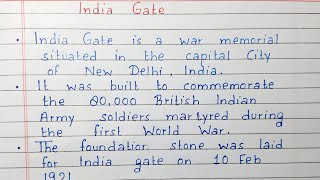 India Gate
• India Gate is a war memorial
situated in the capital City
of New Delhi, India.
• It was built to commemorate
the 20,000 British Indian
Army soldiers martyred during
the first World War.
• The foundation stone was laid
for India gate on 10 Feb
1921